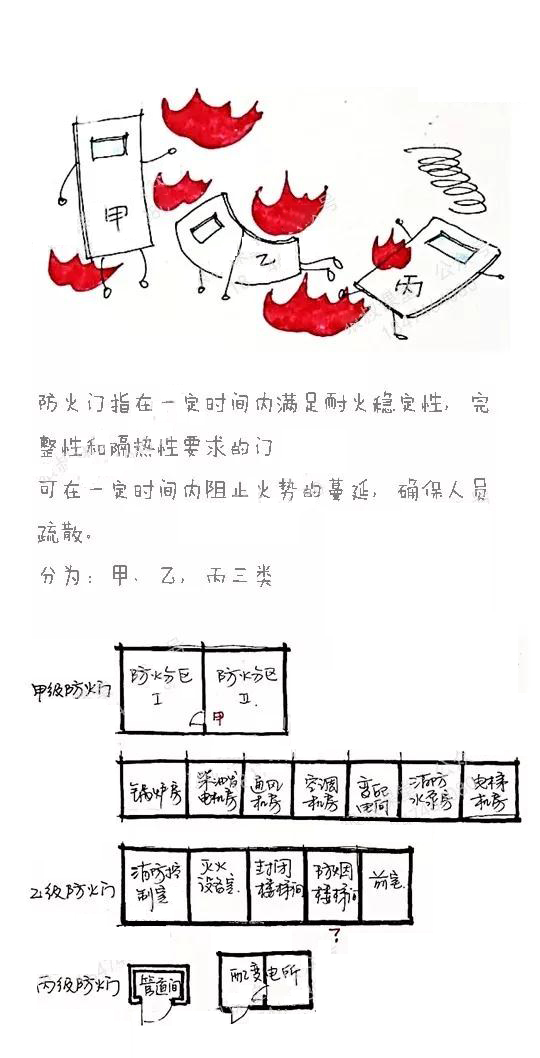 甲
乙
丙
防火门指在一定时间内满足耐火稳定性，完
整性和隔热性要求的门
可在一定时间内阻止火势的蔓延，确保人员
疏散。
分为：甲、乙，丙三类
甲级防火门
防火分区
I
防火分区
II
甲
锅炉房
柴油发
电机房
通风
机房
空调
机房
变配
电间
消防
水泵房
电梯
机房
乙级防火门
消防控
制室
灭火
设备室
封闭
楼梯间
防烟
楼梯间
前室
?
丙级防火门
管道间
配变电所